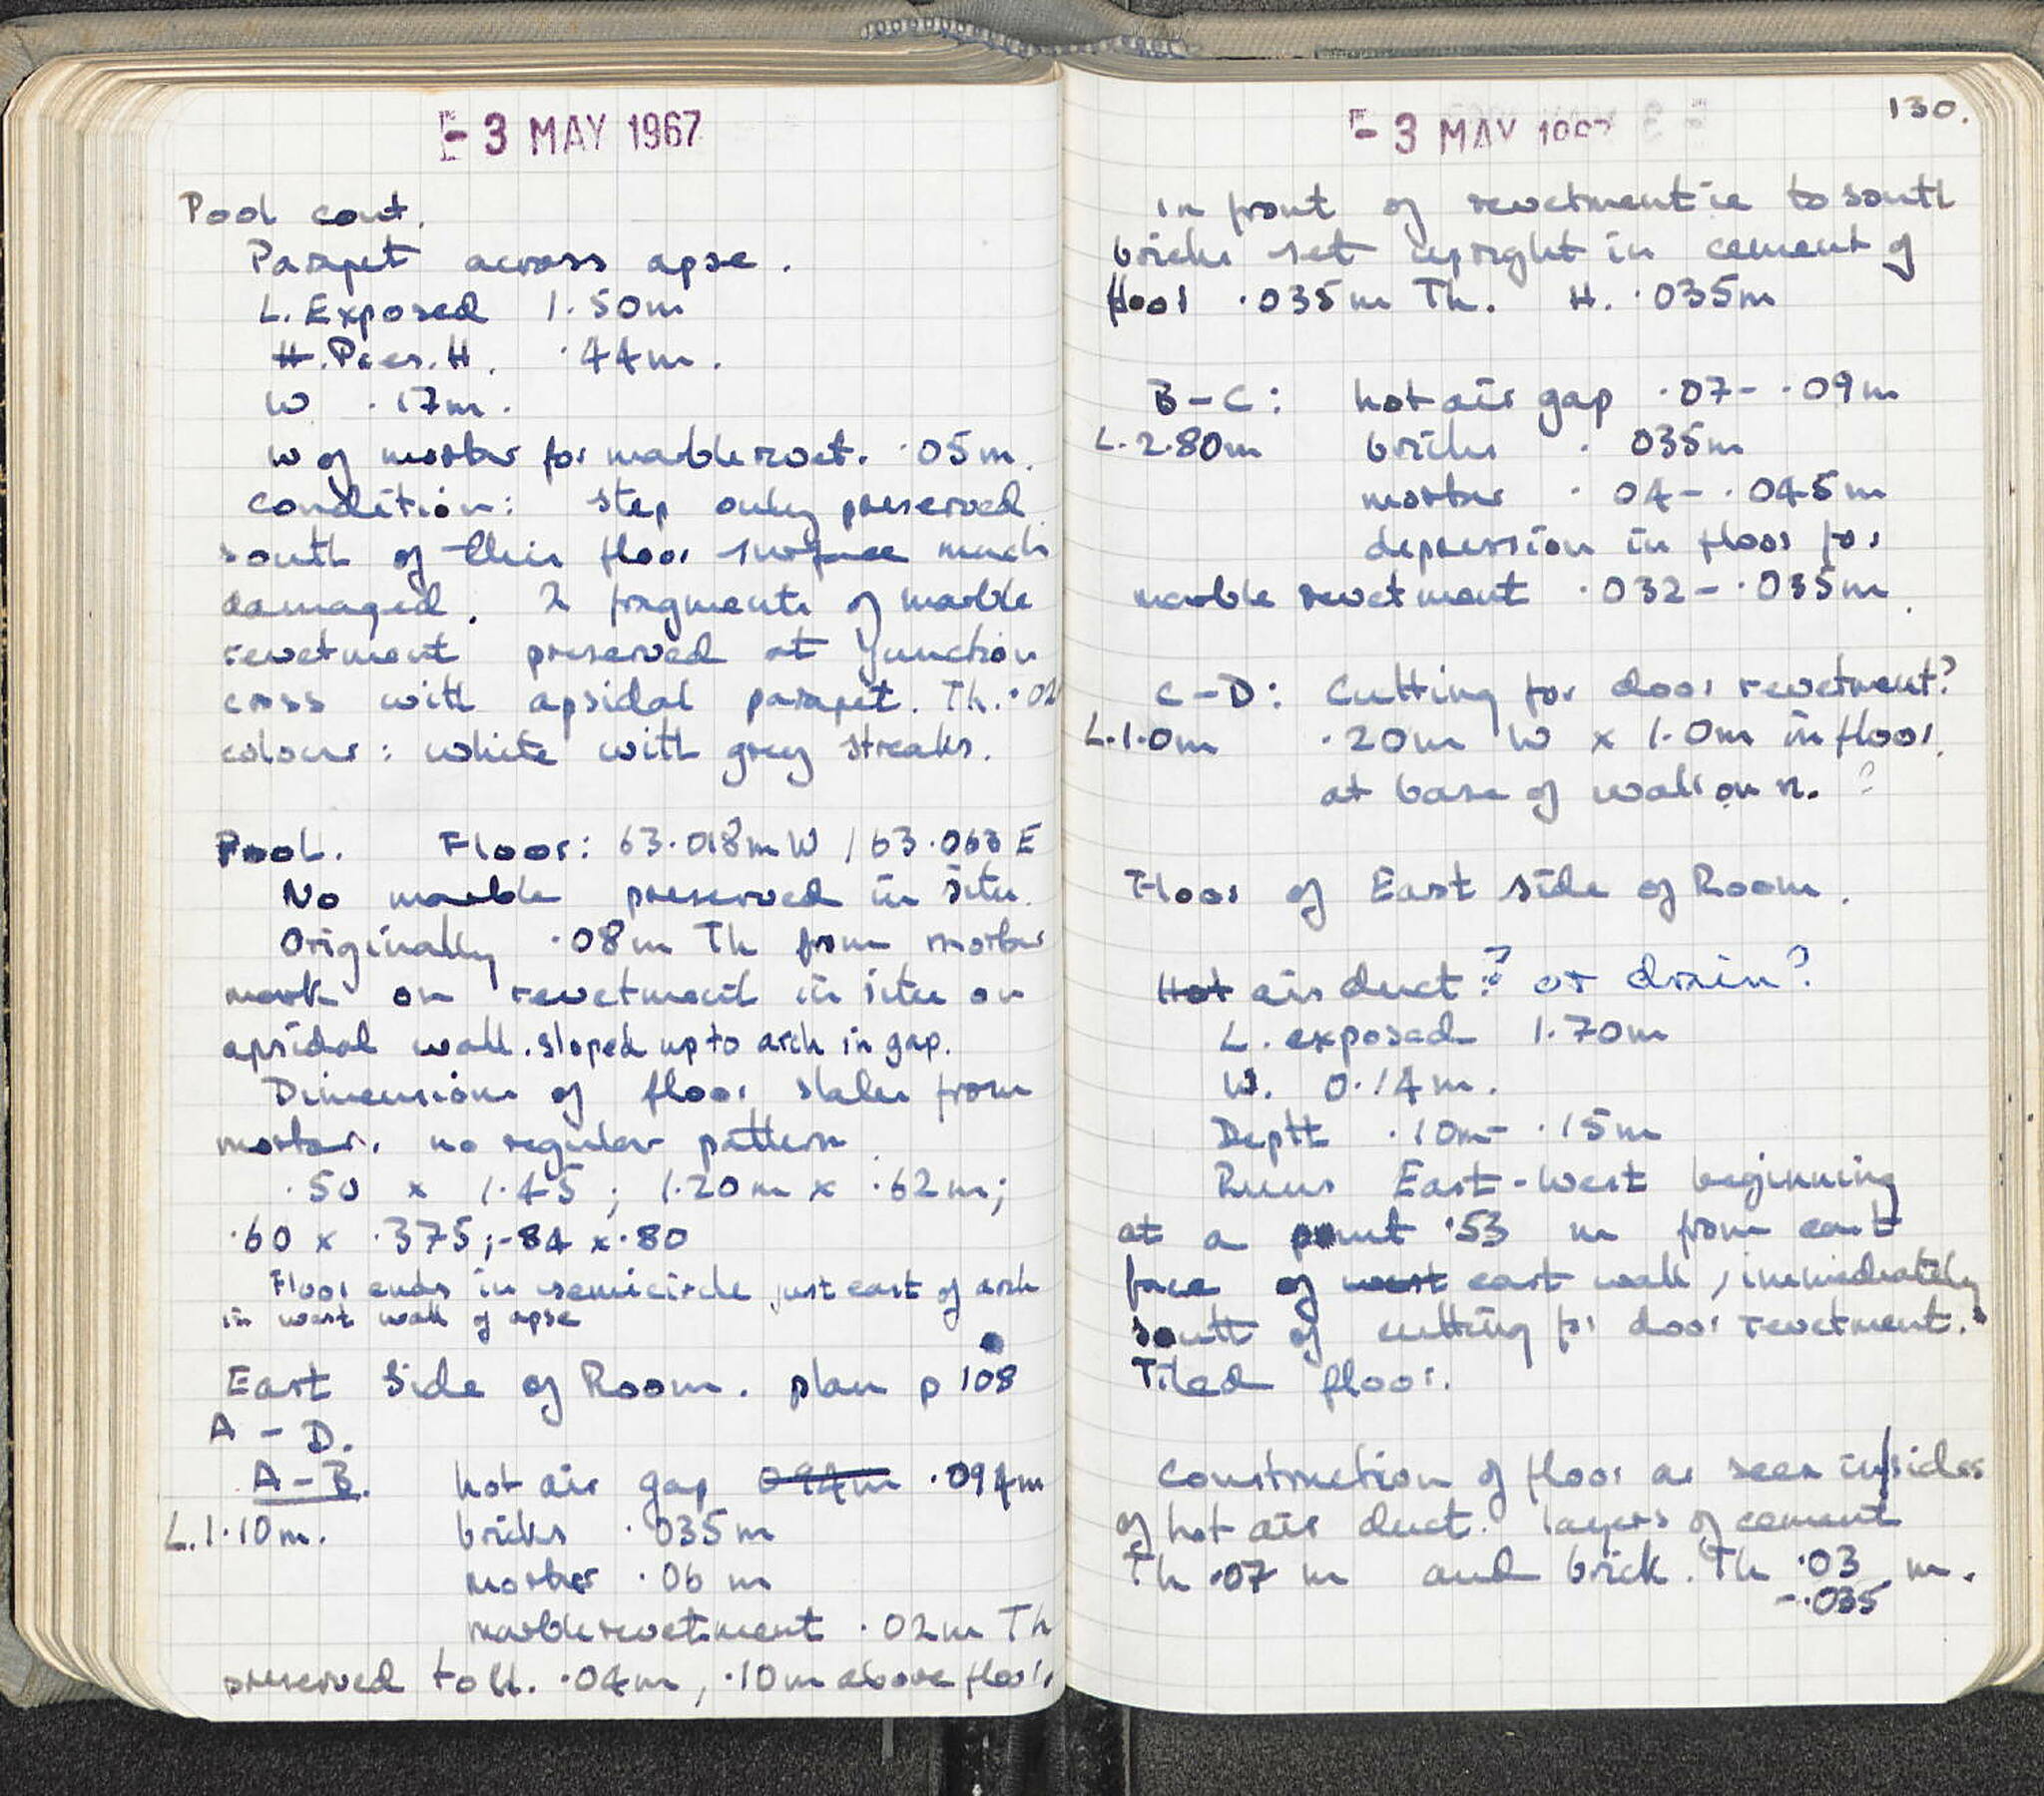 - 3 MAY 1967
Pool cont.
Parapet across apse.
L. Exposed 1.50m
H. Pres. H. .44m.
W .17m.
W of mortar for marble revet. .05m.
Condition: step only preserved
south of this floor surface much
damaged. 2 fragments of marble
revetment preserved at junction
cross with apsidal parapet. Th. .02
colour: white with grey streaks.
Pool. Floor: 63.018m W / 63.063 E
No marble preserved in situ.
Originally .08m Th from mortar
mark on revetment in situ on
apsidal wall. sloped up to arch in gap.
Dimensions of floor slabs from
mortar. no regular pattern.
.50 x 1.45; 1.20m x .62m;
.60 x .375; .84 x .80
Floor ends in semicircle just east of arch
in west wall of apse
East Side of Room. plan p 108
A - D.
A - B. hot air gap 094m .094m
L. 1.10m. bricks .035m
mortar .06m
marble revetment .02m Th
preserved to H. .04m, .10m above floor.
130.
- 3 MAY
in front of revetment ie to south
bricks set upright in cement of
floor .035m Th. H. .035m
B - C: hot air gap .07 - .09m
L. 2.80m bricks .035m
mortar .04 - .045m
depression in floor for
marble revetment .032 - .035m.
C - D: Cutting for door revetment?
L. 1.0m .20m W x 1.0m in floor.
at base of wall on n. ?
Floor of East side of Room.
Hot air duct? or drain?
L. exposed 1.70m
W. 0.14m.
Depth .10m - .15m
Runs East-West beginning
at a point .53 m from east
face of west east wall, immediately
south of cutting for door revetment.
Tiled floor.
Construction of floor as seen in sides
of hot air duct. layers of cement
Th .07 m and brick. Th .03 m.
- .035